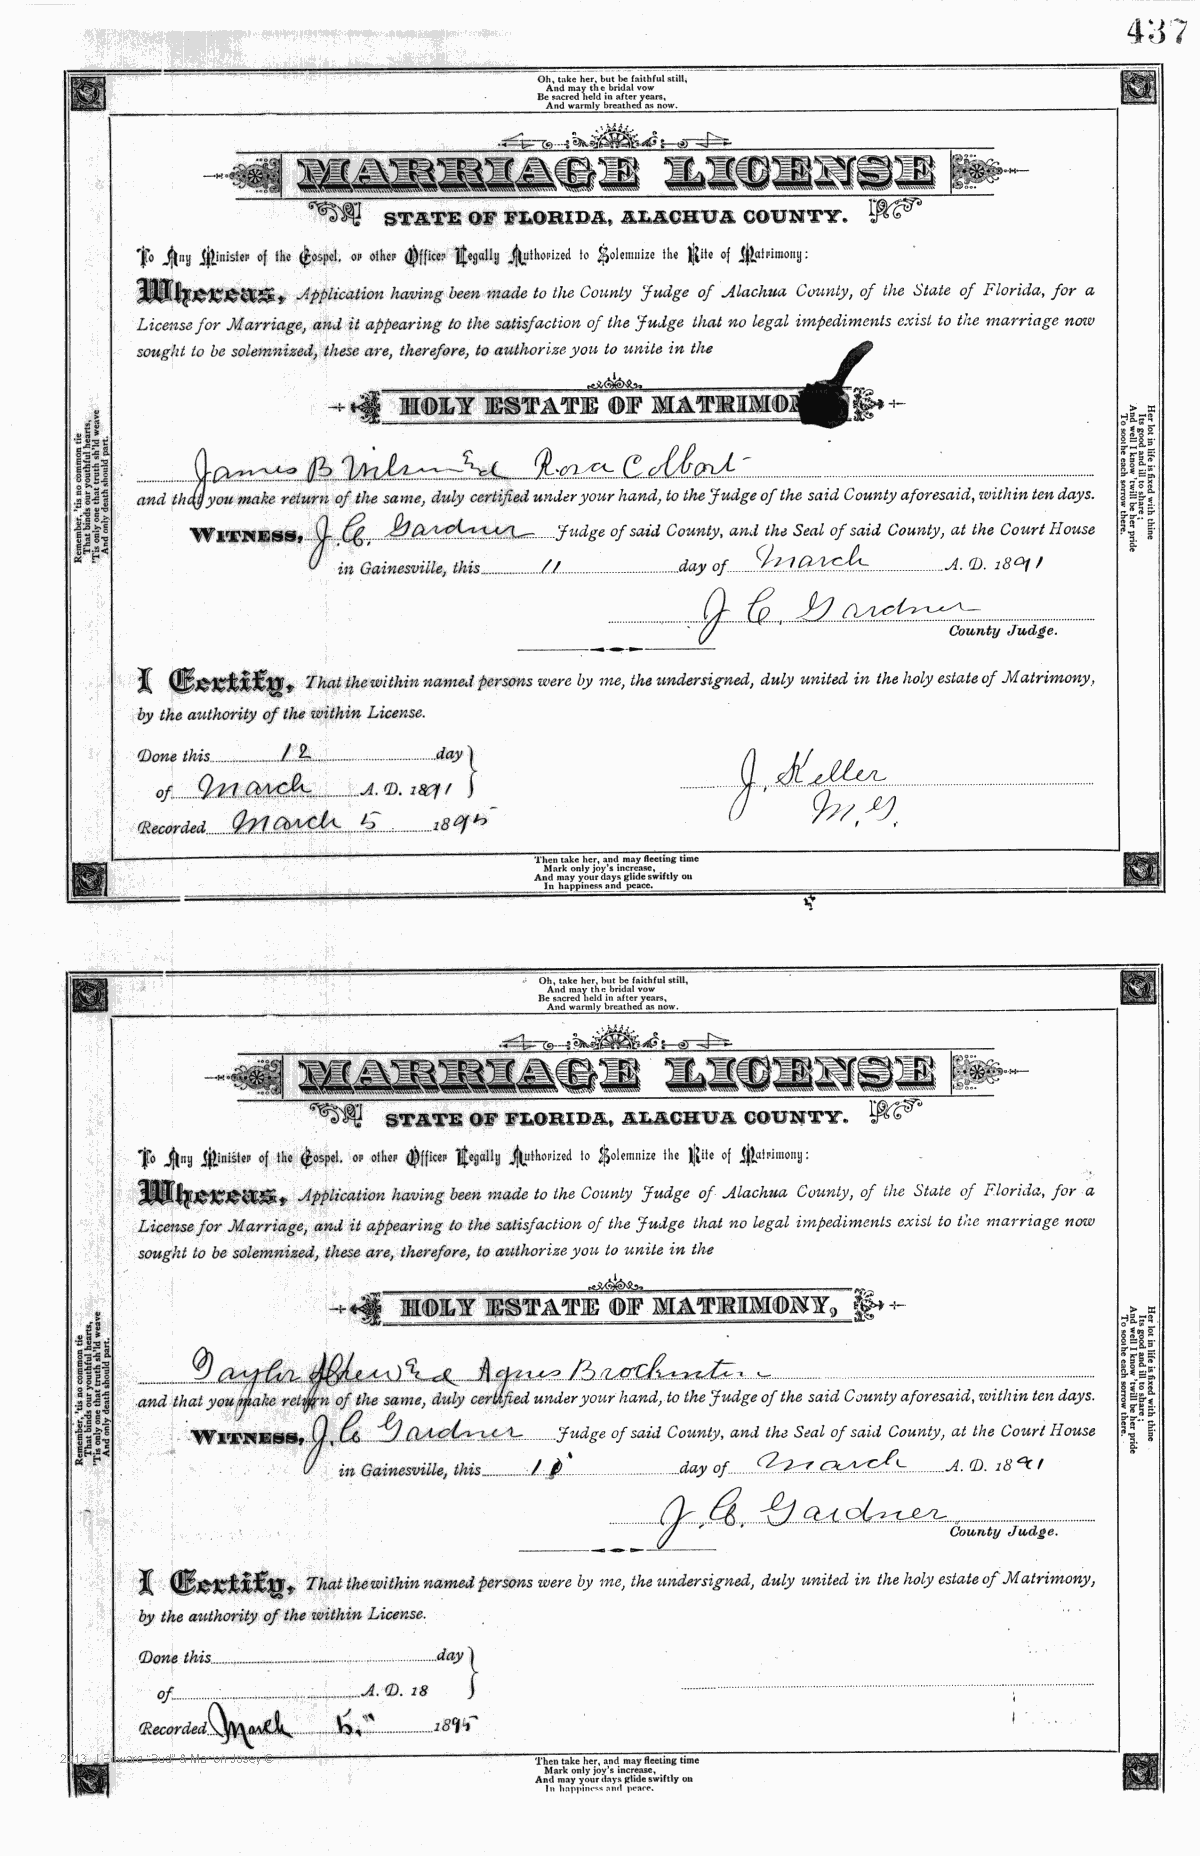 437
Oh, take her, but be faithful still,
And may the bridal vow
Be sacred held in after years,
And warmly breathed as now.
MARRIAGE LICENSE
STATE OF FLORIDA, ALACHUA COUNTY.
To Any Minister of the Gospel, or other Officer Legally Authorized to Solemnize the Rite of Matrimony:
Whereas, Application having been made to the County Judge of Alachua County, of the State of Florida, for a
License for Marriage, and it appearing to the satisfaction of the Judge that no legal impediments exist to the marriage now
sought to be solemnized, these are, therefore, to authorize you to unite in the
HOLY ESTATE OF MATRIMON
James B Wilson and Rosa Colbert
and that you make return of the same, duly certified under your hand, to the Judge of the said County aforesaid, within ten days.
WITNESS, J. C. Gardner Judge of said County, and the Seal of said County, at the Court House
in Gainesville, this 11 day of March A. D. 1891
J C. Gardner
County Judge.
I Certify, That the within named persons were by me, the undersigned, duly united in the holy estate of Matrimony,
by the authority of the within License.
Done this 12 day
of March A. D. 1891
J. Keller
M. G.
Recorded March 5 1895
Then take her, and may fleeting time
Mark only joy's increase,
And may your days glide swiftly on
In happiness and peace.
Remember, 'tis no common tie
That binds our youthful hearts,
'Tis only one that truth sh'ld weave
And only death should part.
Her lot in life is fixed with thine
Its good and ill to share;
And well I know 'twill be her pride
To soothe each sorrow there.
Oh, take her, but be faithful still,
And may the bridal vow
Be sacred held in after years,
And warmly breathed as now.
MARRIAGE LICENSE
STATE OF FLORIDA, ALACHUA COUNTY.
To Any Minister of the Gospel, or other Officer Legally Authorized to Solemnize the Rite of Matrimony:
Whereas, Application having been made to the County Judge of Alachua County, of the State of Florida, for a
License for Marriage, and it appearing to the satisfaction of the Judge that no legal impediments exist to the marriage now
sought to be solemnized, these are, therefore, to authorize you to unite in the
HOLY ESTATE OF MATRIMONY,
Taylor and Agnes Brockinton
and that you make return of the same, duly certified under your hand, to the Judge of the said County aforesaid, within ten days.
WITNESS, J. C. Gardner Judge of said County, and the Seal of said County, at the Court House
in Gainesville, this day of March A. D. 1891
J. C. Gardner
County Judge.
I Certify, That the within named persons were by me, the undersigned, duly united in the holy estate of Matrimony,
by the authority of the within License.
Done this day
of A. D. 18
Recorded March 5 1895
Then take her, and may fleeting time
Mark only joy's increase,
And may your days glide swiftly on
In happiness and peace.
Remember, 'tis no common tie
That binds our youthful hearts,
'Tis only one that truth sh'ld weave
And only death should part.
Her lot in life is fixed with thine
Its good and ill to share;
And well I know 'twill be her pride
To soothe each sorrow there.